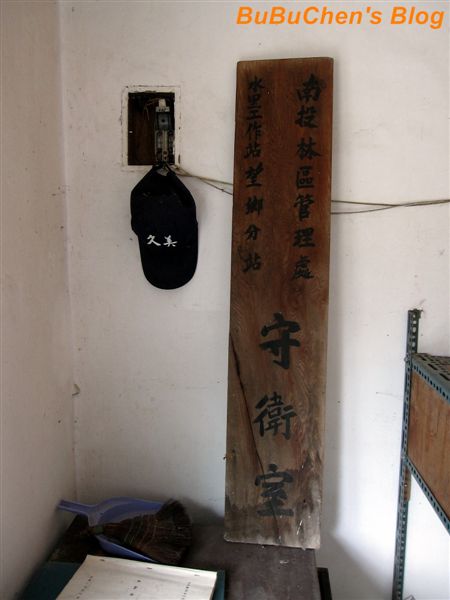 BuBuChen's Blog
南投林區管理處
水里工作站望鄉分站
守衛室
久美